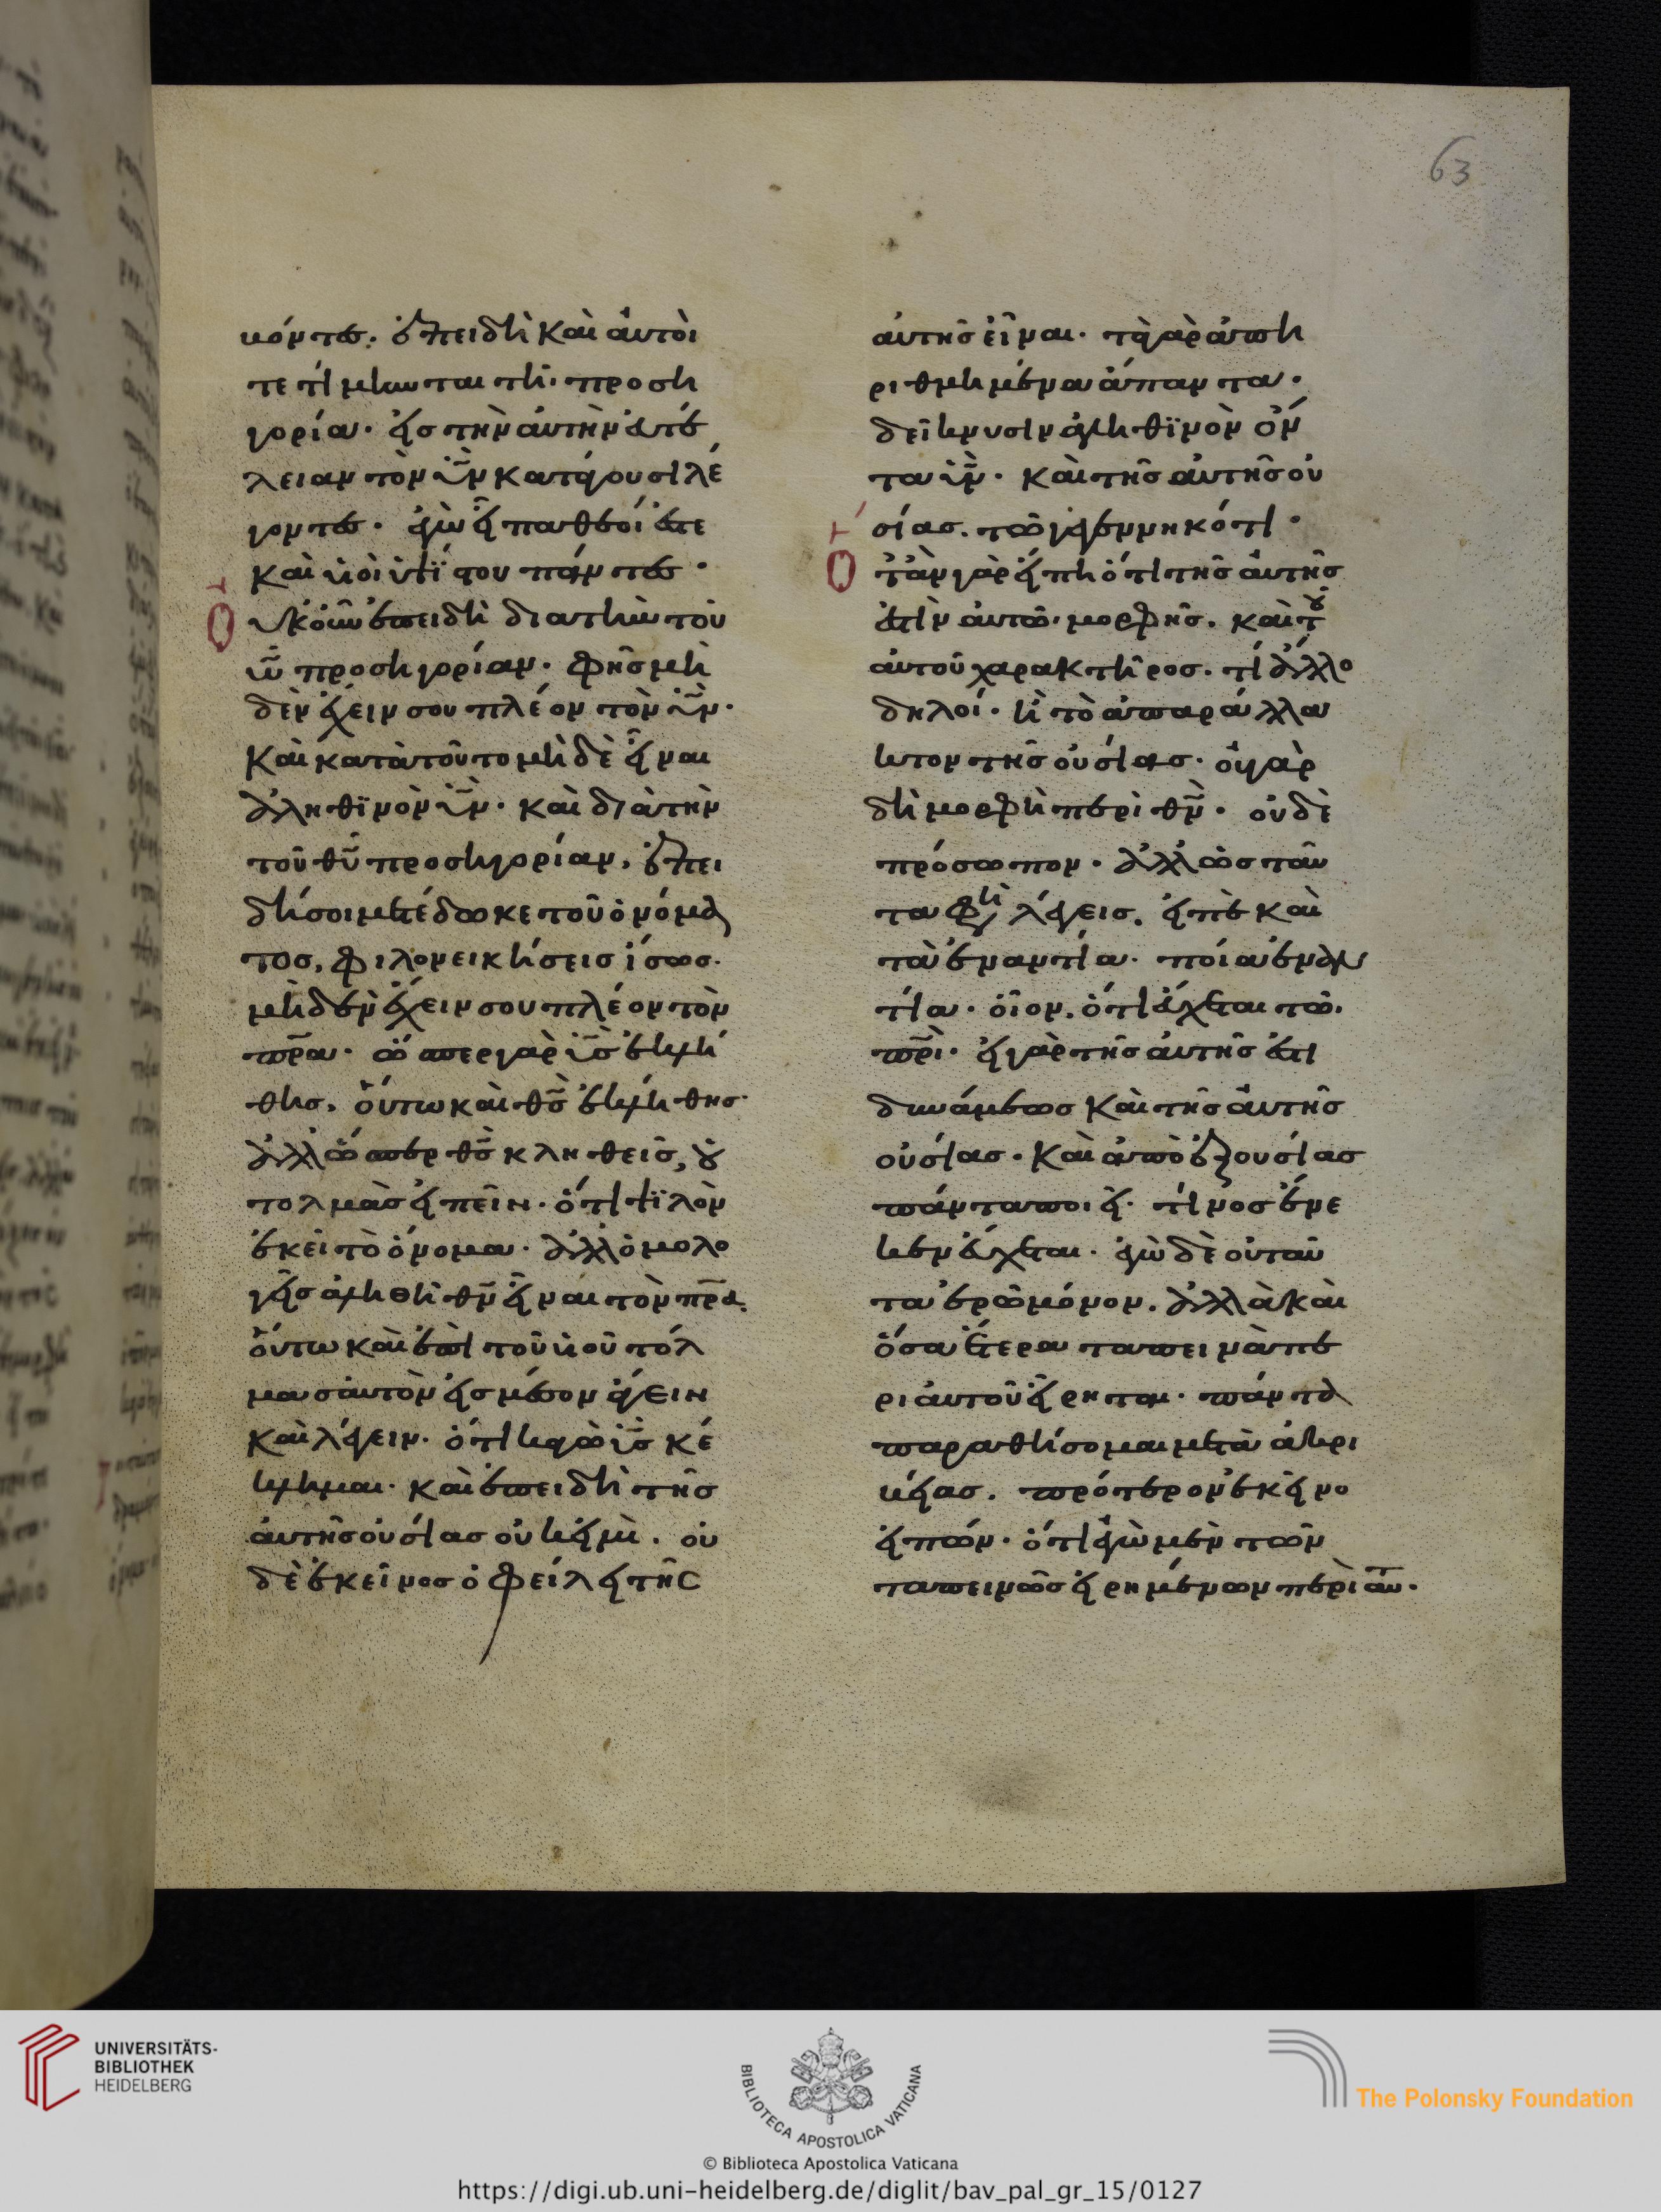 63
κόντες. ἐπειδὴ καὶ αὐτοὶ
τετίμηνται τῆ προση
γορία. εἰς τὴν αὐτὴν εὐτέ
λειαν τὸν υἱν κατάγουσι λέ
γοντες. ἐγὼ εἶπα θεοί ἐστε
καὶ υἱοὶ ὑψίστου πάντες.
Οὐκοῦν ἐπειδὴ διὰ τὴν τοῦ
υυ προσηγορίαν. φῆς μη
δὲν ἔχειν σου πλέον τὸν υν.
καὶ κατὰ τοῦτο μὴ δὲ εἶναι
ἀληθινὸν υν. καὶ διὰ τὴν
τοῦ θυ προσηγορίαν. ἐπει
δή σοι μετέδωκε τοῦ ὀνόμα
τος, φιλονεικήσεις ἴσως.
μὴ δὲν ἔχειν σου πλέον τὸν
πρα. ὥσπερ γὰρ υς ἐκλή
θης. οὕτω καὶ θς ἐκλήθης.
ἀλλ' ὥσπερ θς κληθεὶς, οὐ
τολμᾶς εἰπεῖν. ὅτι ψιλὸν
ἐκεῖ τὸ ὄνομα. ἀλλ' ὁμολο
γεῖς ἀληθῆ θν εἶναι τὸν πρα.
οὕτω καὶ ἐπὶ τοῦ υἱοῦ τόλ
μα σαυτὸν εἰς μέσον ἄγειν
καὶ λέγειν. ὅτι κἀγὼ υς κέ
κλημαι. καὶ ἐπειδὴ τῆς
αὐτῆς οὐσίας οὔκ εἰμὶ. οὐ
δὲ ἐκεῖνος ὀφείλει τῆς
αὐτῆς εἶναι. τὰ γὰρ ἀπη
ριθμημένα ἅπαντα.
δείκνυσιν ἀληθινὸν ὄν
τα υν. καὶ τῆς αὐτῆς οὐ
σίας. τῶ γεγεννηκότι.
Ὅταν γὰρ εἴπη ὅτι τῆς αὐτῆς
ἐστὶν αὐτῶ μορφῆς. καὶ τοῦ
αὐτοῦ χαρακτῆρος. τί ἄλλο
δηλοῖ. ἢ τὸ ἀπαράλλα
κτον τῆς οὐσίας. οὐ γὰρ
δὴ μορφὴ περὶ θν. οὐδὲ
πρόσωπον. ἀλλ' ὡς ταῦ
τα φὴ λέγεις. εἰπὲ καὶ
τὰ ἐναντία. ποία ἐναν
τία. οἷον. ὅτι εὔχεται τῶ
πρι. εἰ γὰρ τῆς αὐτῆς ἐστι
δυνάμεως καὶ τῆς αὐτῆς
οὐσίας. καὶ ἀπὸ ἐξουσίας
πάντα ποιεῖ. τίνος ἕνε
κεν εὔχεται. ἐγὼ δὲ οὐ ταῦ
τα ἐρῶ μόνον. ἀλλὰ καὶ
ὅσα ἕτερα ταπεινὰ πε
ρι αὐτοῦ εἴρηται. πάντα
παραθήσομαι μετὰ ἀκρι
βείας. πρότερον ἐκεῖνο
εἰπών. ὅτι ἐγὼ μὲν τῶν
ταπεινῶς εἰρημένων περὶ αὐτ.
UNIVERSITÄTS-
BIBLIOTHEK
HEIDELBERG
BIBLIOTECA APOSTOLICA VATICANA
The Polonsky Foundation
© Biblioteca Apostolica Vaticana
https://digi.ub.uni-heidelberg.de/diglit/bav_pal_gr_15/0127